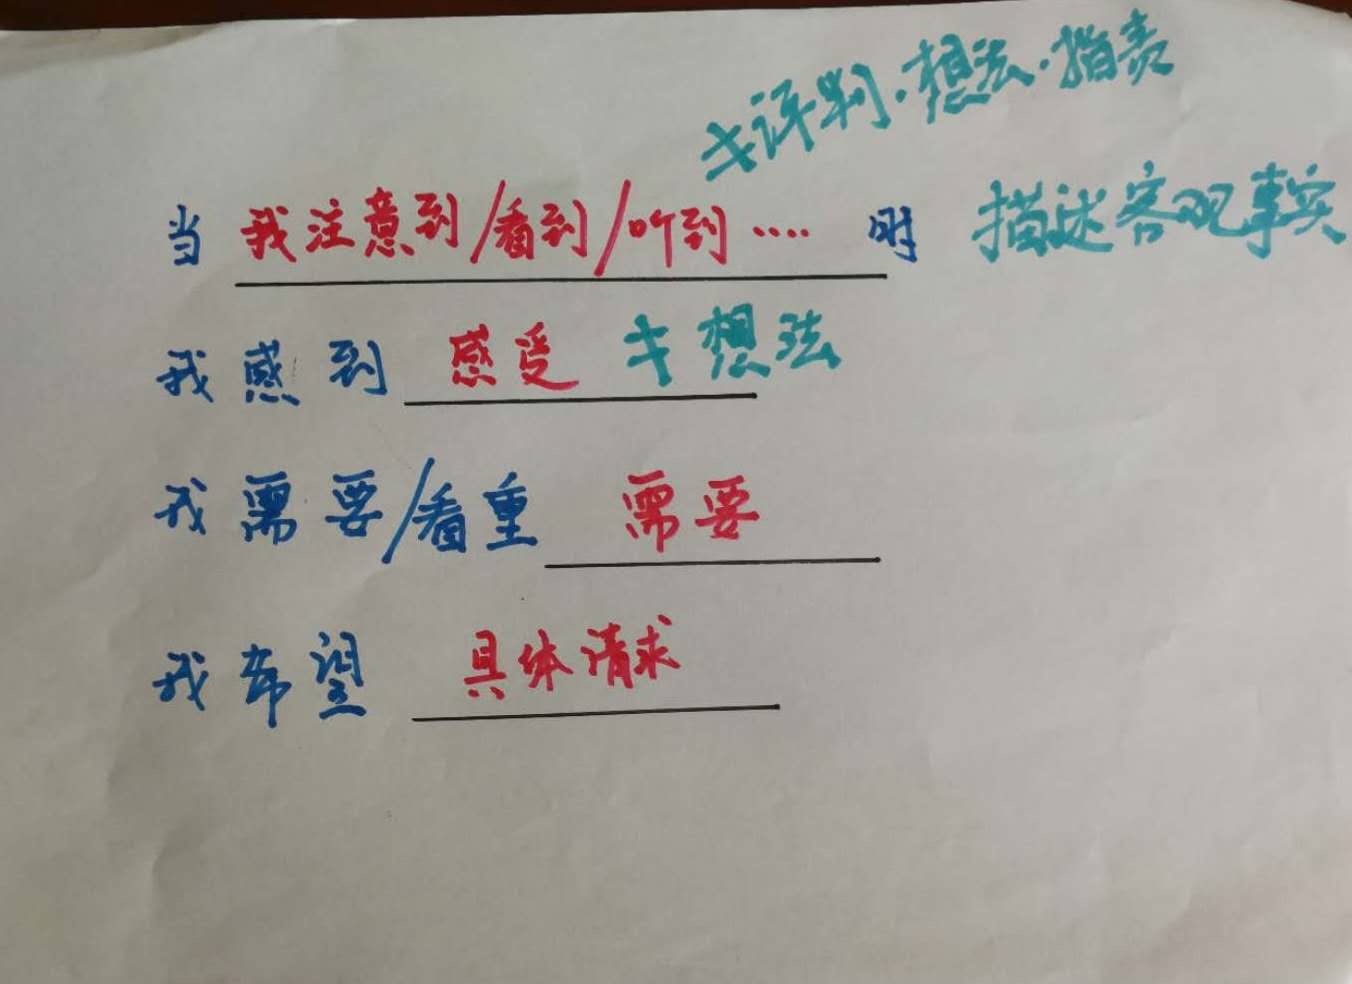 ≠评判·想法·指责
当 我注意到/看到/听到 ···· 时 描述客观事实
我感到 感受 ≠想法
我需要/看重 需要
我希望 具体请求